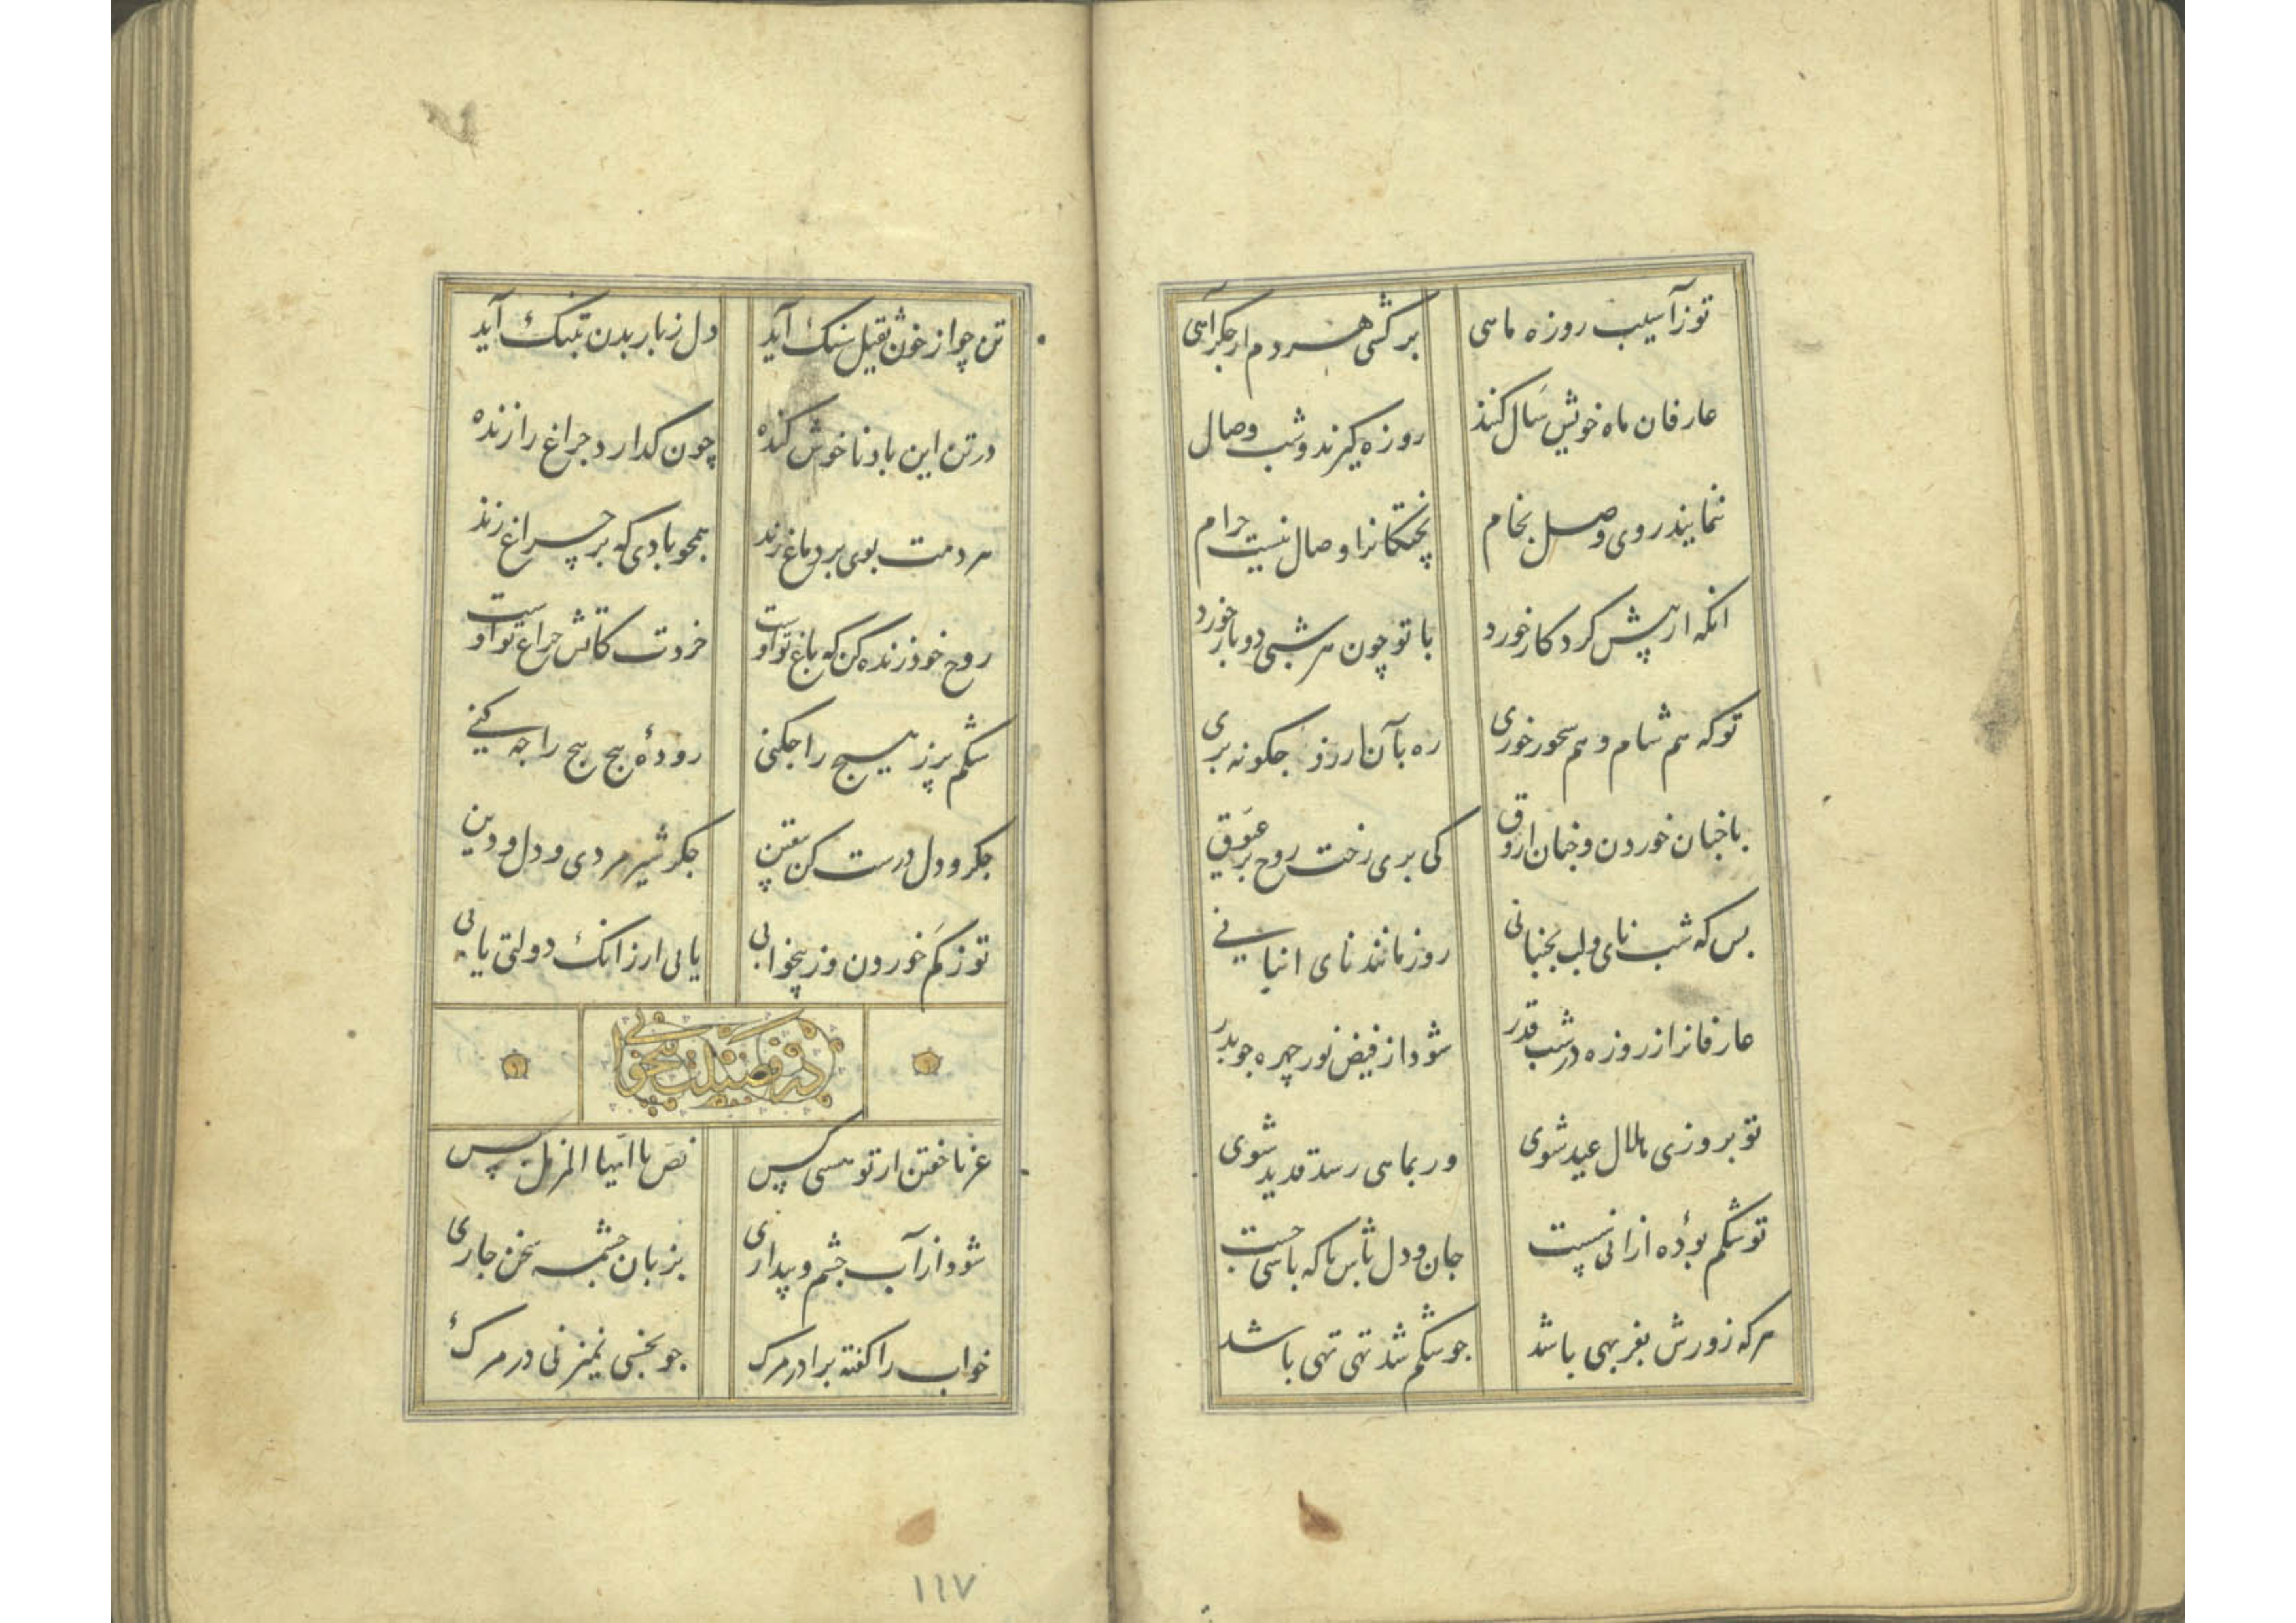 توز آسیب روزه ماهی برکشی هر دم از جکر آهی
عارفان ماه خویش سال کنند روزه کیرند و شب وصال
ننمایند روی وصل بخام پختکانرا وصال نیست حرام
انکه از پیش کرد کار خورد با تو چون هر شبی دو بار خورد
تو که هم شام و هم سحور خوری ره بآن ارزو جکونه بری
با جنان خوردن و جنان اروق کی بری رخت روح بر عیوق
بس که شب نای و لب بجنبانی روز مانند نای انبانی
عارفانرا از روزه در شب قدر شود از فیض نور چهره جو بدر
تو بروزی هلال عید شوی ور بماهی رسد قدید شوی
تو شکم بودهٔ ازانی پست جان و دل باش تا که باشی جست
هرکه زورش بفربهی باشد جو شکم شد تهی تهی باشد
تن چو از خوش ثقیل سنک آید دل ز بار بدن بتنک آید
در تن این باد ناخوش کنده چون کدارد جراغ را زنده
هر دمت بوی بر دماغ زند همجو بادی که بر چراغ زند
روح خود زنده کن که باغ تو اوست خردت کاتش جراغ تو اوست
شکم پر ز هیج را جکنی رودهٔ بیج بیج را جه کنی
جکر و دل درست کن بیقین جکر شیر مردی و دل و دین
تو ز کم خوردن و ز بیخوابی یابی ار زانک دولتی یابی
در فضیلت بیخوابی
عز ناخفتن ار تو هسی کس نص یا ایها المزمل بس
شود از آب جشم و بیداری بزبان جشمه سخن جاری
خواب را کفته برادر مرک جو بخسبی نمیزنی در مرک
١١٧